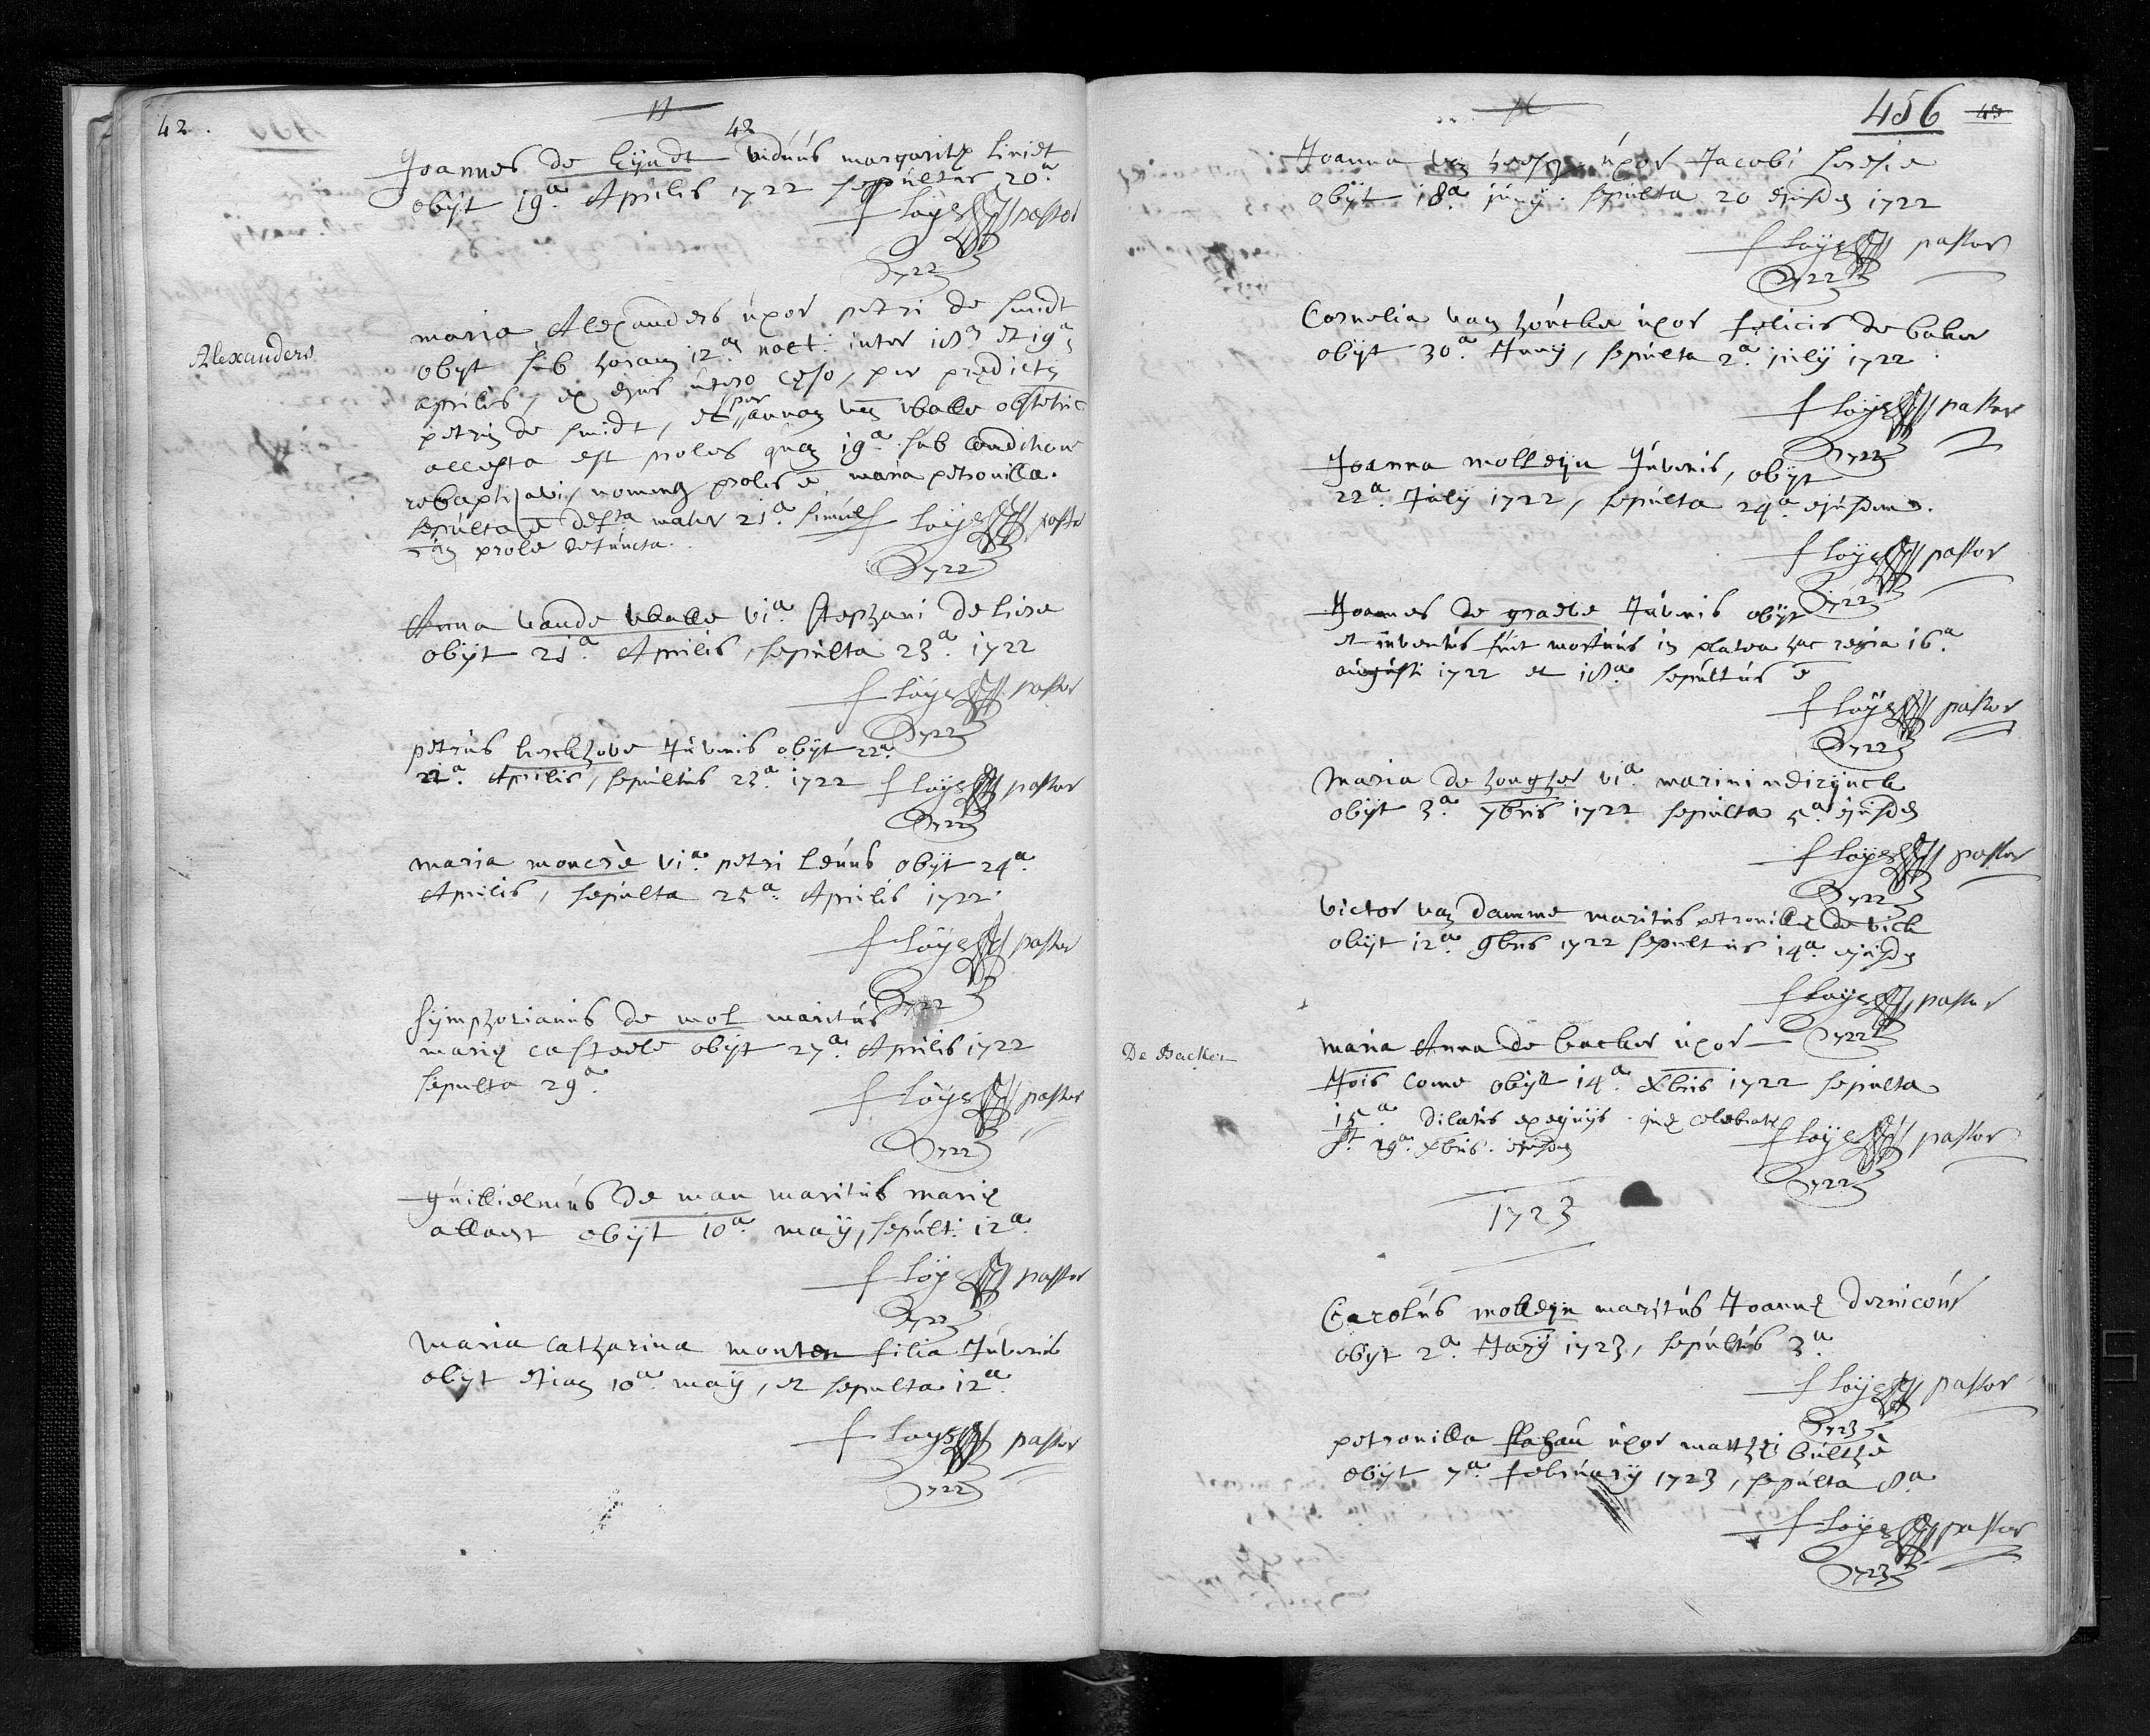 42.
42
Joannes de Cÿndt viduus margaritę liniet
obÿt 19.a Aprilis 1722 sepultus 20.a
f Loÿs pastor
1722
Alexanders
maria Alexanders uxor petri de smidt
obÿt sub horam 12.am noct: inter 18.am et 19.am
aprilis, ex ejus utero cęso, per prędictum
petrum de smidt, et per annam van walle obstetric
accepta est proles quam 19.a sub conditione
rebaptizavi, nomen prolis ē maria petronilla.
sepulta ē defta mater 21.a simul f Loÿs pastor
cum prole defuncta.
1722
Anna vande walle vi.a stephani de liere
obÿt 21.a Aprilis, sepulta 23.a 1722
f Loÿs pastor
1722
petrus kerckhove Juvenis obÿt 22.a
22.a Aprilis, sepultus 23.a 1722 f Loÿs pastor
1722
maria moncrè vi.a petri leuus obÿt 24.a
Aprilis, sepulta 25.a Aprilis 1722.
f Loÿs pastor
1722
sÿmphorianus de mol maritus
marię casteele obÿt 27.a Aprilis 1722
sepulta 29.a
f Loÿs pastor
1722
guillielmus de man maritus marię
allaert obÿt 10.a maÿ, sepult: 12.a
f Loÿs pastor
1722
Maria catharina monten filia Juvenis
obÿt etiam 10.a maÿ, et sepulta 12.a
f Loÿs pastor
1722
456 43
Joanna van uxor Jacobi
obÿt 18.a junÿ. sepulta 20 ejusdem 1722
f Loÿs pastor
1722
Cornelia van houcke uxor felicis de baker
obÿt 30.a Junÿ, sepulta 2.a julÿ 1722
f Loÿs pastor
1722
Joanna molleÿn Juvenis, obÿt
22.a Julÿ 1722, sepulta 24.a ejusdem.
f Loÿs pastor
1722
Joannes de graeve Juvenis obÿt
et inventus fuit mortuus in platea hac regia 16.a
augusti 1722 et 18.a sepultus ē
f Loÿs pastor
1722
Maria de hongher vi.a marini ndirÿnck
obÿt 3.a 7bris 1722 sepulta 5.a ejusdem
f Loÿs pastor
1722
victor van damme maritus petronillę de vick
obÿt 12.a 9bris 1722 sepultus 14.a ejusdem
f Loÿs pastor
1722
De Backer
maria Anna de backer uxor
Jois come obÿt 14.a Xbris 1722 sepulta
15.a dilatis exequÿs quę celebratę
st 29.a Xbris ejusdem f Loÿs pastor
1722
1723
Carolus molleÿn maritus Joannę dernicour
obÿt 2.a Jarÿ 1723, sepultus 3.a
f Loÿs pastor
1723
petronilla flahau uxor matthęi bulthè
obÿt 7.a februarÿ 1723, sepulta 8.a
f Loÿs pastor
1723